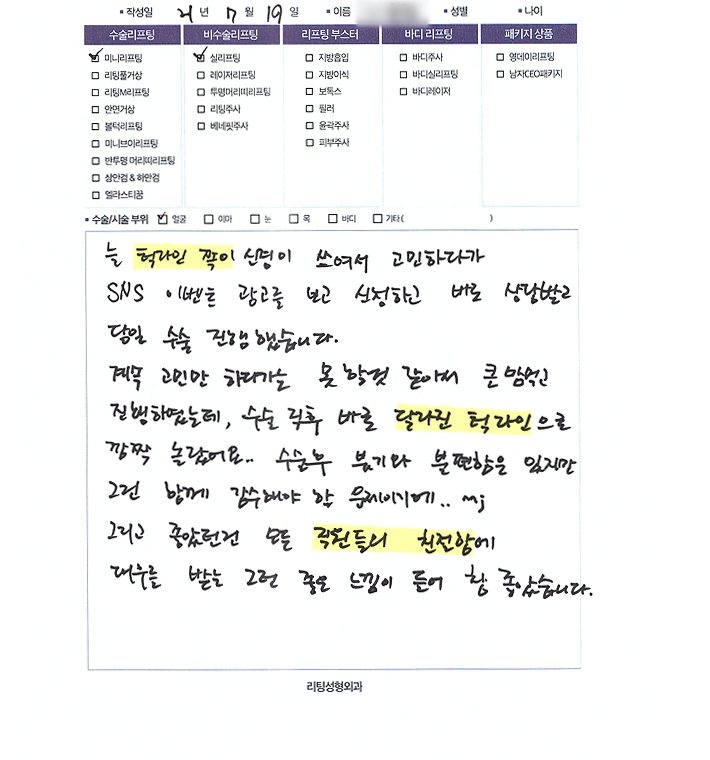 ▪ 작성일 21 년 7 월 19 일 ▪ 이름 ▪ 성별 ▪ 나이
수술리프팅 비수술리프팅 리프팅 부스터 바디 리프팅 패키지 상품
☑ 미니리프팅 ☑ 실리프팅 □ 지방흡입 □ 바디주사 □ 영데이리프팅
□ 리팅풀거상 □ 레이저리프팅 □ 지방이식 □ 바디실리프팅 □ 남자CEO패키지
□ 리팅M리프팅 □ 투명머리띠리프팅 □ 보톡스 □ 바디레이저
□ 안면거상 □ 리팅주사 □ 필러
□ 볼턱리프팅 □ 베네핏주사 □ 윤곽주사
□ 미니브이리프팅 □ 피부주사
□ 반투명 머리띠리프팅
□ 상안검 & 하안검
□ 엘라스티꿈
▪ 수술/시술 부위 ☑ 얼굴 □ 이마 □ 눈 □ 목 □ 바디 □ 기타( )
늘 턱라인 쪽이 신경이 쓰여서 고민하다가
SNS 이벤트 광고를 보고 신청하고 바로 상담받고
당일 수술 진행했습니다.
계속 고민만 하다가는 못할것 같아서 큰맘먹고
진행하였는데, 수술 직후 바로 달라진 턱라인으로
깜짝 놀랐어요.. 수술후 붓기와 불편함은 있지만
그건 함께 감수해야 할 문제이기에..
그리고 좋았던건 모든 직원들의 친절함에
대우를 받는 그런 좋은 느낌이 들어 참 좋았습니다.
리팅성형외과